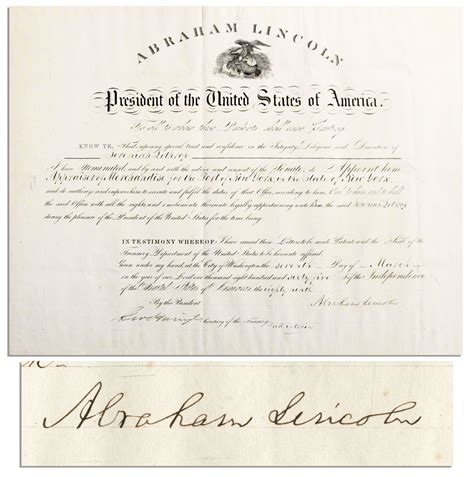 ABRAHAM LINCOLN
President of the United States of America.
To all to whom these Presents shall come, Greeting:
KNOW YE, That reposing special trust and confidence in the Integrity, Diligence and Discretion of
Jeremiah
I have Nominated, and by and with the advice and consent of the Senate, do Appoint him
Appraiser of Merchandise, for the Port of New York, in the State of New York,
and do authorize and empower him to execute and fulfil the duties of that Office according to law; And to have and to hold
the said Office with all the rights and emoluments thereunto legally appertaining unto him the said Jeremiah
during the pleasure of the President of the United States for the time being.
IN TESTIMONY WHEREOF: I have caused these Letters to be made Patent and the Seal of the
Treasury Department of the United States to be hereunto affixed
Given under my hand, at the City of Washington the Day of
in the year of our Lord one thousand eight hundred and sixty five of the Independence
of the United States of America the eighty
By the President
Abraham Lincoln
Secretary of the Treasury
Abraham Lincoln